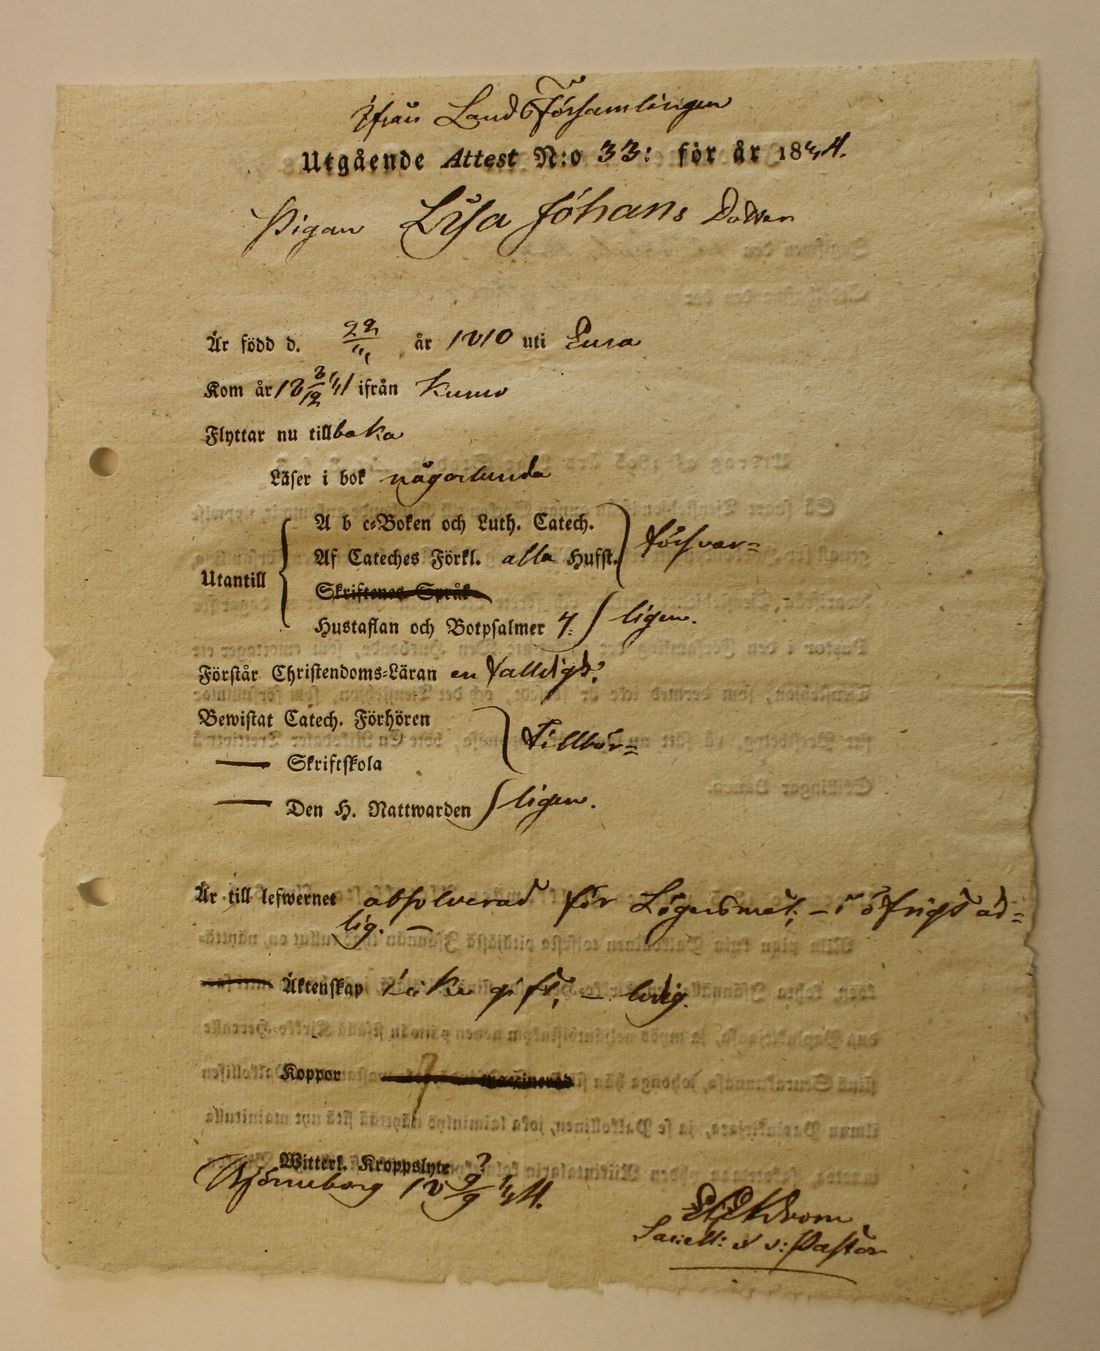 ifrån Lands Församlingen
Utgående Attest N:o 33: för år 1844.
Pigan Lisa Johans Dotter
Är född d. 22/11 år 1810 uti Eura
Kom år 18 3/12 41 ifrån Kumo
Flyttar nu tillbaka
Läser i bok någorlunda
Utantill
A b c-Boken och Luth. Catech.
Af Cateches Förkl. alla Husst. försvar=
Skriftenes Språk
Hustaflan och Botpsalmer 7: ligen.
Förstår Christendoms-Läran enfalldigt.
Bewistat Catech. Förhören
Tillbör=
— Skriftskola
— Den H. Nattwarden ligen.
Är till lefwernet absolverad för Lägersmål; – i öfrigt ad=
lig. –
Äktenskap icke gift, – ledig.
Koppor ?
Witterl. Kroppslyte ?
Björneborg 18 9/9 44.
Ekström
Sacell: v: Pastor